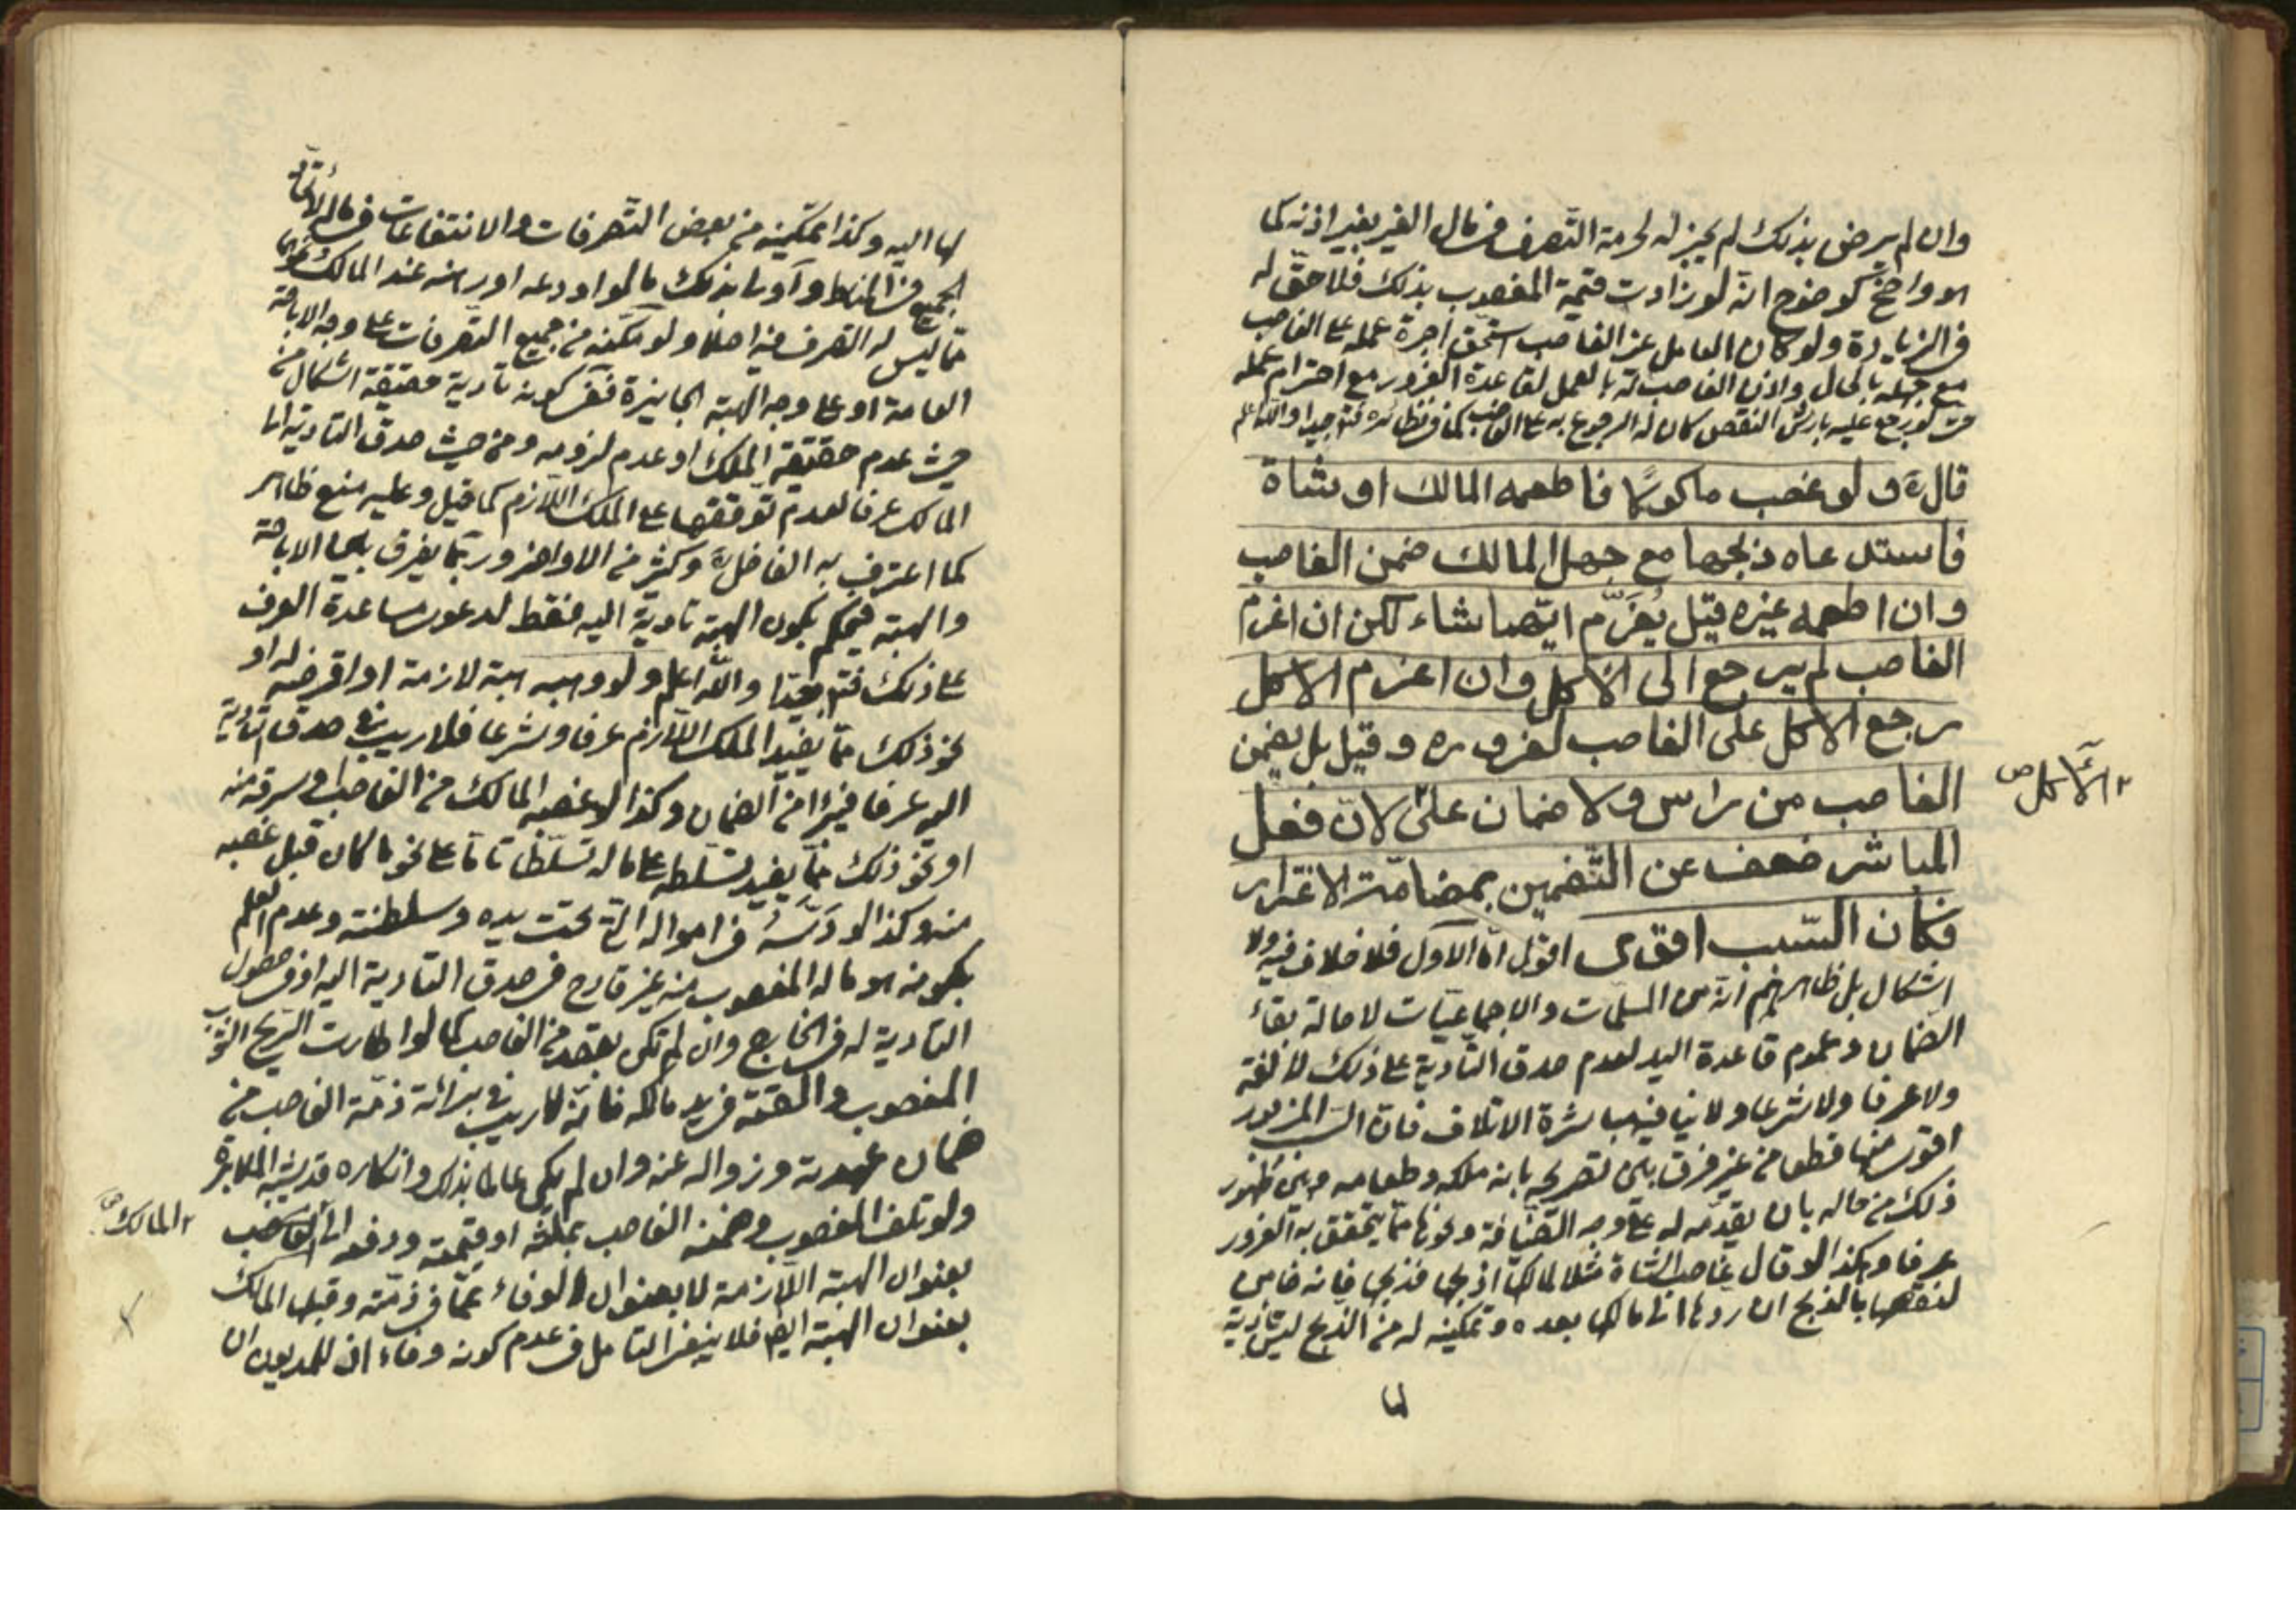 وان لم يرض بذلك لم يجز له لحرمة التّصرف في مال الغير بغير اذنه كما
هو واضح كوضوح انّه لو زادت قيمة المغصوب بذلك فلا حقّ له
في الزيادة ولو كان العامل غير الغاصب استحق اجرة عمله على الغاصب
مع جهله بالحال واذن الغاصب له بالعمل لقاعدة الغرور مع احترام عمله
لو رجع عليه بارش النقص كان له الرجوع به على الغاصب كما في نظائره فتدبر جيدا والله اعلم
قال ره ولو غصب ماكولًا فاطعمه المالك او شاة
فاستدعاه ذبحها مع جهل المالك ضمن الغاصب
وان اطعمه غيره قيل يُغَرَّم ايّهما شاء لكن ان اغرم
الغاصب لم يرجع الى الآكل وان اغرم الآكل
رجع الآكل على الغاصب لغروره وقيل بل يضمن
الغاصب من راس ولا ضمان على لانّ فعل
الآكل ص
المباشر ضعف عن التّضمين بمضامّة الاغترار
فكان السّبب اقوى اقول امّا الاول فلا خلاف فيه ولا
اشكال بل ظاهرهم انّه من المسلّمات والاجماعيّات لاصالة بقاء
الضّمان وعموم قاعدة اليد لعدم صدق التّادية على ذلك لا لغة
ولا عرفا ولا شرعا ولا ينافيه مباشرة الاتلاف فانّ السّبب المزبور
اقوى منها قطعا من غير فرق بين تصريحه بانه ملكه وطعامه وبين ظهور
ذلك من حاله بان يقدّمه له على وجه الضّيافة ونحوها ممّا يتحقق به الغرور
عرفا وكذا لو قال غاصب الشاة مثلا لمالكها اذبحها فذبحها فانه ضامن
لنقصها بالذبح ان ردها الى مالكها بعده وتمكينه له من الذبح ليس تادية
لها
لها اليه وكذا تمكينه من بعض التّصرفات والانتفاعات في ماله لاتحاد
الجميع في المناط وآولى بذلك ما لو اودعه او رهنه عند المالك ونحوهما
ممّا ليس له التصرف فيه اصلا ولو مكّنه من جميع التّصرفات على وجه الاباحة
العامة او على وجه الهبة الجايزة ففي كونه تادية حقيقة اشكال من
حيث عدم حقيقة الملك او عدم لزومه ومن حيث صدق التادية الى
المالك عرفا لعدم توقّفها على الملك اللّازم كما قيل وعليه منع ظاهر
كما اعترف به الفاضل ره وكثير من الاواخر وربّما يفرق بين الاباحة
والهبة فيحكم بكون الهبة تادية اليه فقط لدعوى مساعدة العرف
على ذلك فتدبر جيّدا والله اعلم ولو وهبه هبة لازمة او اقرضه له او
نحو ذلك ممّا يفيد الملك اللّازم عرفا وشرعا فلا ريب في صدق التادية
اليه عرفا فيبرا من الضمان وكذا لو غصبه المالك من الغاصب او سرقه منه
او نحو ذلك ممّا يفيد تسلّطه على ماله تسلّطا تامّا على نحو ما كان قبل غصبه
منه وكذا لو دَسَّهُ في امواله الّتي تحت يده وسلطنته وعدم العلم
بكونه هو ماله المغصوب منه غير قادح في صدق التادية اليه او في حصول
التادية له في الخارج وان لم تكن بقصد من الغاصب كما لو اطارت الرّيح الثوب
المغصوب والقته في يد مالكه فانّه لا ريب في برائة ذمّة الغاصب من
ضمان عهدته وزواله عنه وان لم يكن عالما بذلك وانكاره قد يشبه المكابرة
ولو تلف المغصوب وضمنه الغاصب بمثله او قيمته ودفعه الى الغاصب
المالك ص
بعنوان الهبة اللّازمة لا بعنوان الوفاء عمّا في ذمّته وقبلها المالك
بعنوان الهبة ايضا فلا ينبغي التامل في عدم كونه وفاء اذ للمديون ان